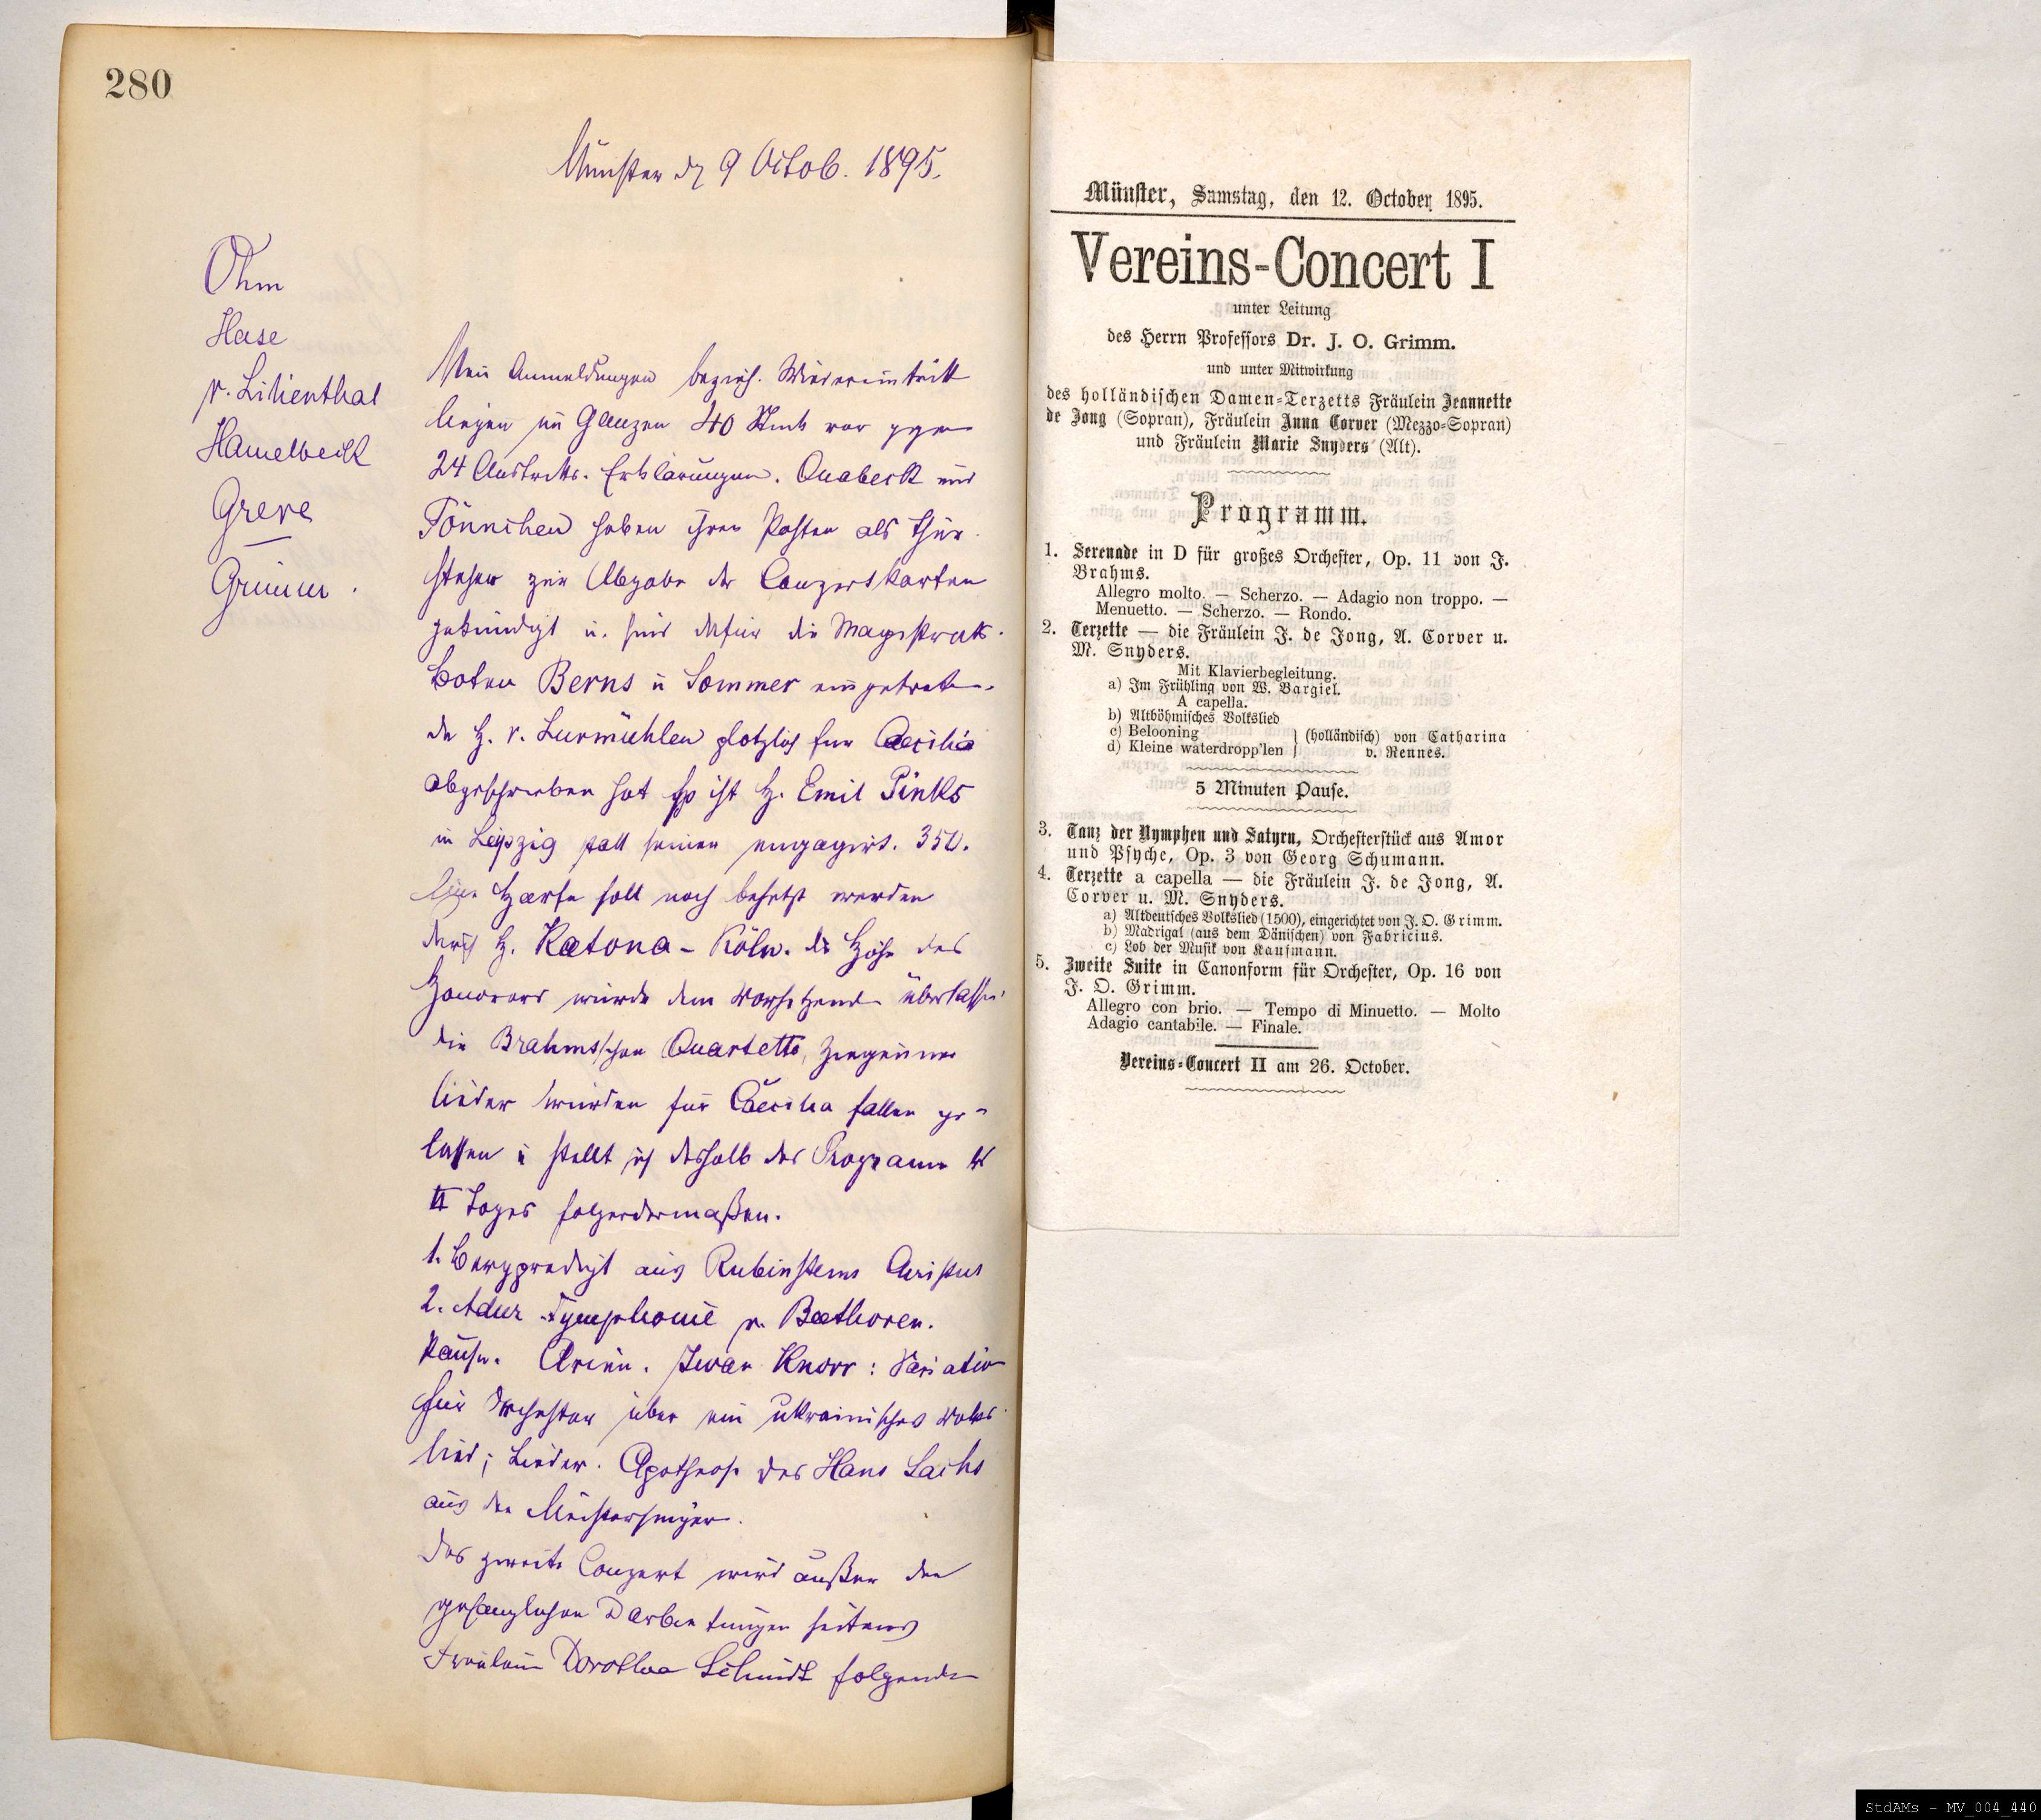 280
Münster d 9 Octob. 1895.
Ohm
Hase
v. Lilienthal
Hamelbeck
Greve
Grimm.
Neu Anmeldungen bezieh. Wiedereintritt
liegen im Ganzen 40 Stück vor gegen
24 Austritts-Erklärungen. Quabeck und
Tönnchen haben ihren Posten als Thür-
steher zur Abgabe der Conzertkarten
gekündigt u. sind dafür die Magistrats-
boten Berns u Sommer eingetreten.
da H. v. Zurmühlen plotzlich fur Caecilia
abgeschrieben hat so ist H. Emil Pinks
in Leipzig statt seiner engagirt. 350.
Eine Harfe soll noch besetzt werden
durch H. Katona - Köln. die Höhe des
Honorars wurde dem Vorsitzenden überlassen.
die Brahmsschen Quartette, Zigeuner
lieder wurden für Cäecilia fallen ge-
lassen u stellt sich deshalb das Programm des
II Tages folgendermaßen.
1. Bergpredigt aus Rubinsteins Christus
2. Adur Symphonie v. Beethoven.
Pause. Arien. Iwan Knorr: Variation
für Orchester über ein ukrainisches Volks-
lied; Lieder. Apotheose des Hans Sachs
aus den Meistersinger.
das zweite Conzert wird außer den
gesanglichen Darbietungen seitens
Fräulein Dorothea Schmidt folgende
Münster, Samstag, den 12. October 1895.
Vereins-Concert I
unter Leitung
des Herrn Professors Dr. J. O. Grimm.
und unter Mitwirkung
des holländischen Damen-Terzetts Fräulein Jeannette
de Jong (Sopran), Fräulein Anna Corver (Mezzo-Sopran)
und Fräulein Marie Snyders (Alt).
Programm.
1. Serenade in D für großes Orchester, Op. 11 von J.
Brahms.
Allegro molto. — Scherzo. — Adagio non troppo. —
Menuetto. — Scherzo. — Rondo.
2. Terzette — die Fräulein J. de Jong, A. Corver u.
M. Snyders.
Mit Klavierbegleitung.
a) Im Frühling von W. Bargiel.
A capella.
b) Altböhmisches Volkslied
c) Belooning } (holländisch) von Catharina
d) Kleine waterdropp'len } v. Rennes.
5 Minuten Pause.
3. Tanz der Nymphen und Satyrn, Orchesterstück aus Amor
und Psyche, Op. 3 von Georg Schumann.
4. Terzette a capella — die Fräulein J. de Jong, A.
Corver u. M. Snyders.
a) Altdeutsches Volkslied (1500), eingerichtet von J. O. Grimm.
b) Madrigal (aus dem Dänischen) von Fabricius.
c) Lob der Musik von Kaufmann.
5. Zweite Suite in Canonform für Orchester, Op. 16 von
J. O. Grimm.
Allegro con brio. — Tempo di Minuetto. — Molto
Adagio cantabile. — Finale.
Vereins-Concert II am 26. October.
StdAMs - MV_004_440